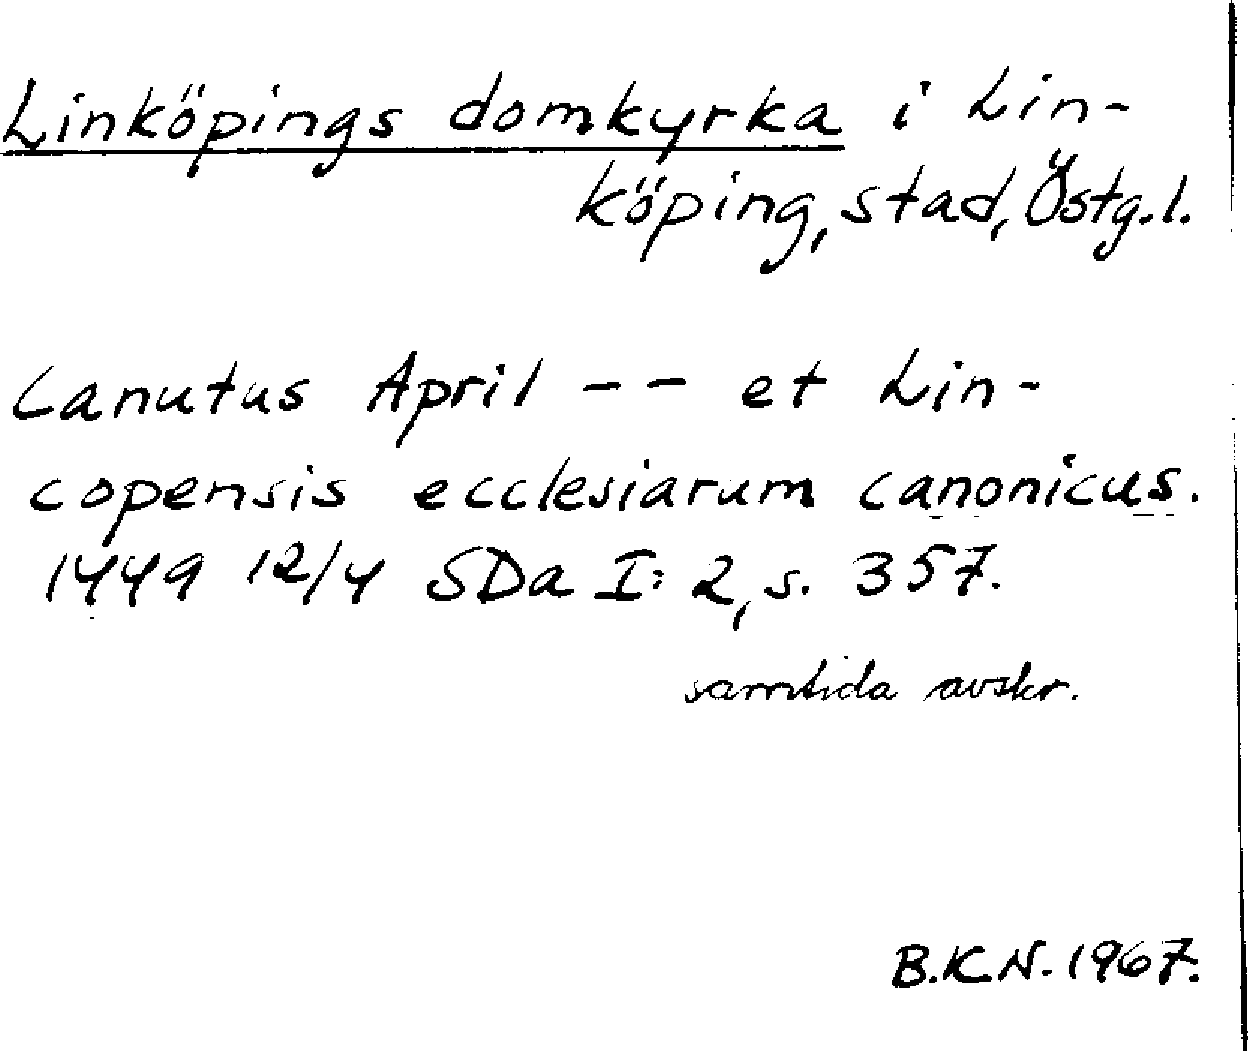 Linköpings domkyrka i Lin-
köping, stad, Östg.l.
Canutus April -- et Lin-
copensis ecclesiarum canonicus.
1449 12/4 SDa I:2, s. 357.
samtida avskr.
B.K.N. 1967.